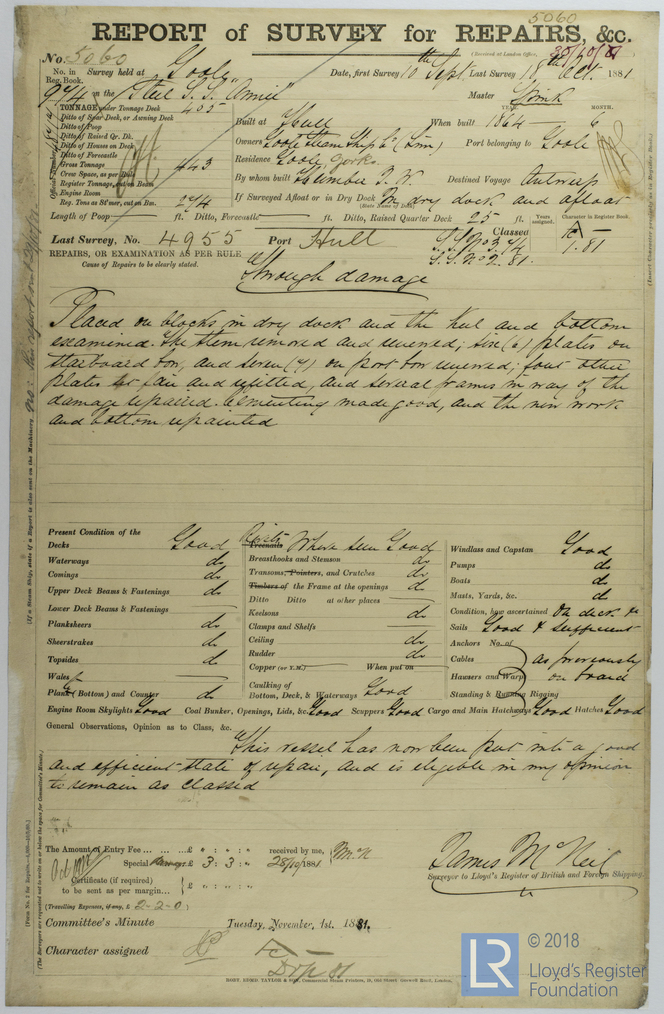 5060
REPORT of SURVEY for REPAIRS, &c.
(Received at London Office,
No. 5060
No. in Reg. Book.
Survey held at Goole
Date, first Survey 10th Sept. Last Survey 18th Oct. 1881
974 on the "Steel S.S. Annie" Master
TONNAGE under Tonnage Deck 405
Ditto of Spar Deck, or Awning Deck
Ditto of Poop
Ditto of Raised Qr. Dk.
Ditto of Houses on Deck
Ditto of Forecastle
Gross Tonnage 443
Crew Space, as per Rule
Register Tonnage, cut on Beam
Engine Room
Reg. Tons as St'mer, cut on Bm. 274
Official Number
YEAR. MONTH.
Built at Hull When built 1864 6
Owners Goole Steam Ship Co (Lim) Port belonging to Goole
Residence Goole, Yorks
By whom built Humber I. W. Destined Voyage Antwerp
If Surveyed Afloat or in Dry Dock In dry dock and afloat
(State Name of Dock)
Length of Poop ft. Ditto, Forecastle ft. Ditto, Raised Quarter Deck 25 ft.
Years assigned. Character in Register Book.
Last Survey, No. 4955 Port Hull
Classed
S.S. No 3. 74
S.S. No 2. 81
1.81
REPAIRS, OR EXAMINATION AS PER RULE
Cause of Repairs to be clearly stated.
Through damage
Placed on blocks in dry dock and the keel and bottom
examined. The stem removed and renewed; six (6) plates on
starboard bow, and seven (7) on port bow renewed; four other
plates set fair and refitted, and several frames in way of the
damage repaired. Cementing made good, and the new work
and bottom repainted
Present Condition of the
Decks Good
Waterways do
Comings do
Upper Deck Beams & Fastenings do
Lower Deck Beams & Fastenings
Planksheers do
Sheerstrakes do
Topsides do
Wales
Plank (Bottom) and Counter do
Treenails Rivets Where seen Good
Breasthooks and Stemson do
Transoms, Pointers, and Crutches do
Timbers of the Frame at the openings do
Ditto Ditto at other places
Keelsons do
Clamps and Shelfs
Ceiling do
Rudder do
Copper (or Y.M.) When put on
Caulking of Bottom, Deck, & Waterways Good
Windlass and Capstan Good
Pumps do
Boats do
Masts, Yards, &c. do
Condition, how ascertained On deck &
Sails Good & sufficient
Anchors No. of
Cables as previously
Hawsers and Warps on board
Standing & Running Rigging
Engine Room Skylights Good Coal Bunker, Openings, Lids, &c. Good Scuppers Good Cargo and Main Hatchways Good Hatches Good
General Observations, Opinion as to Class, &c.
This vessel has now been put into a good
and efficient state of repair, and is eligible in my opinion
to remain as classed
The Amount of Entry Fee £ " : " : " received by me,
Special Damage £ 3 : 3 : " 28/10/1881
Certificate (if required) £ " : " : "
to be sent as per margin
(Travelling Expenses, if any, £ 2-2-0)
James McNeil
Surveyor to Lloyd's Register of British and Foreign Shipping.
Committee's Minute Tuesday, November, 1st. 1881.
Character assigned
LR
© 2018
Lloyd's Register
Foundation